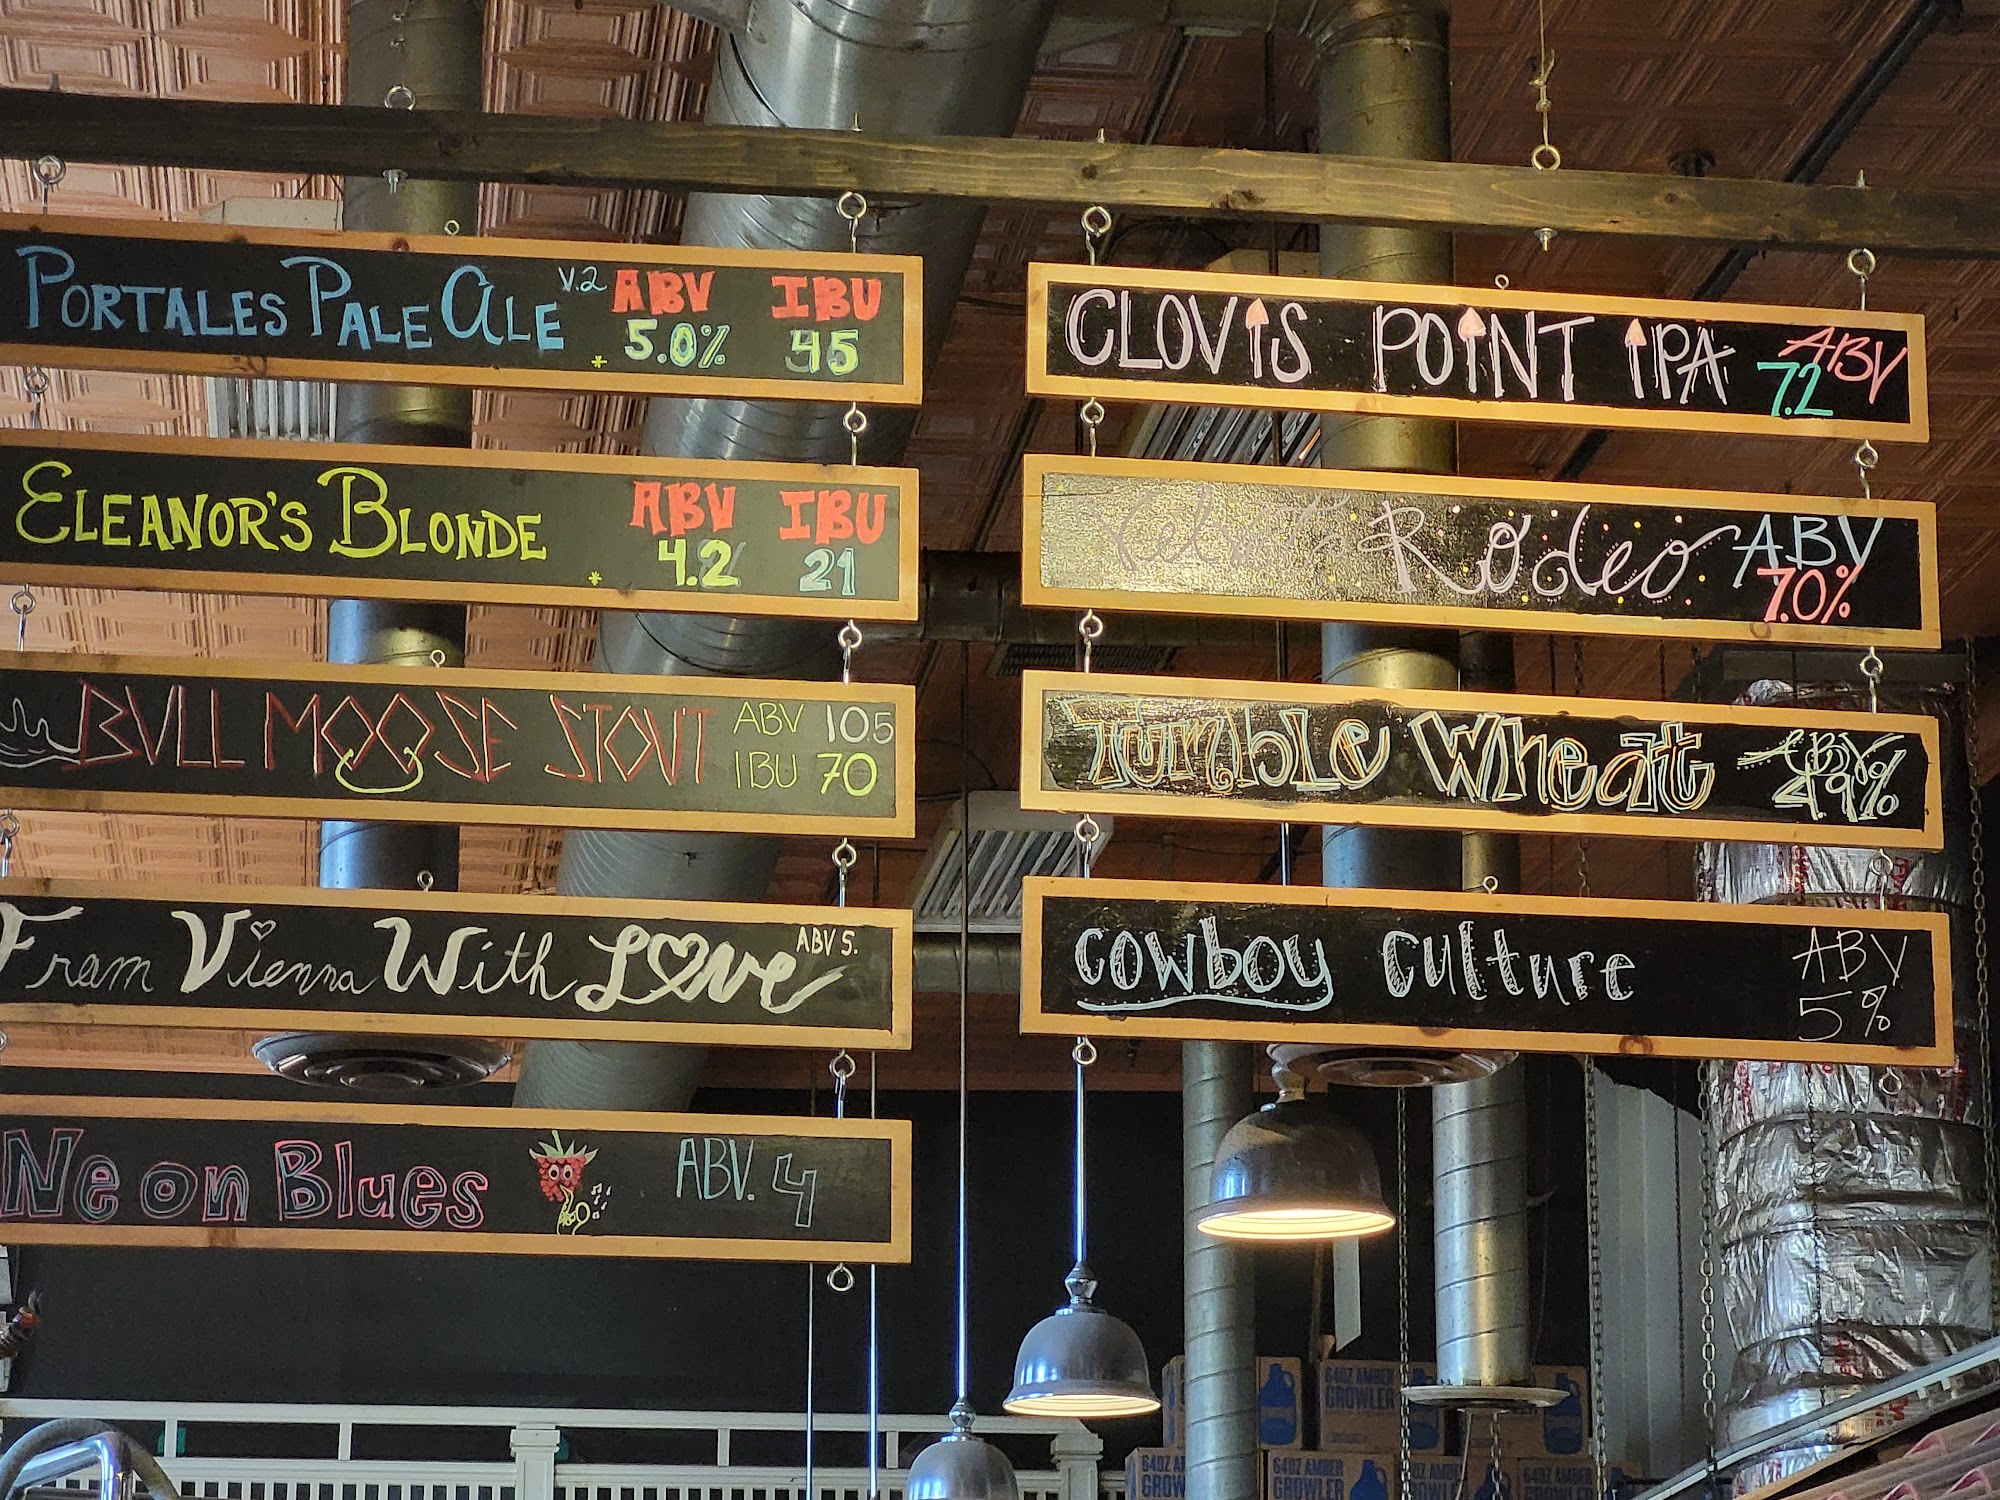 PORTALES PALE ALE V.2 ABV IBU
5.0% 45
ELEANOR'S BLONDE ABV IBU
4.2 21
BULL MOOSE STOUT ABV 10.5
IBU 70
From Vienna With Love ABV 5.
Neon Blues ABV. 4
CLOVIS POINT IPA ABV
7.2
Rodeo ABV
7.0%
Tumble Wheat ABV
4.9%
Cowboy Culture ABV
5%
64OZ AMBER
GROWLER
64OZ AMBER
GROWLER